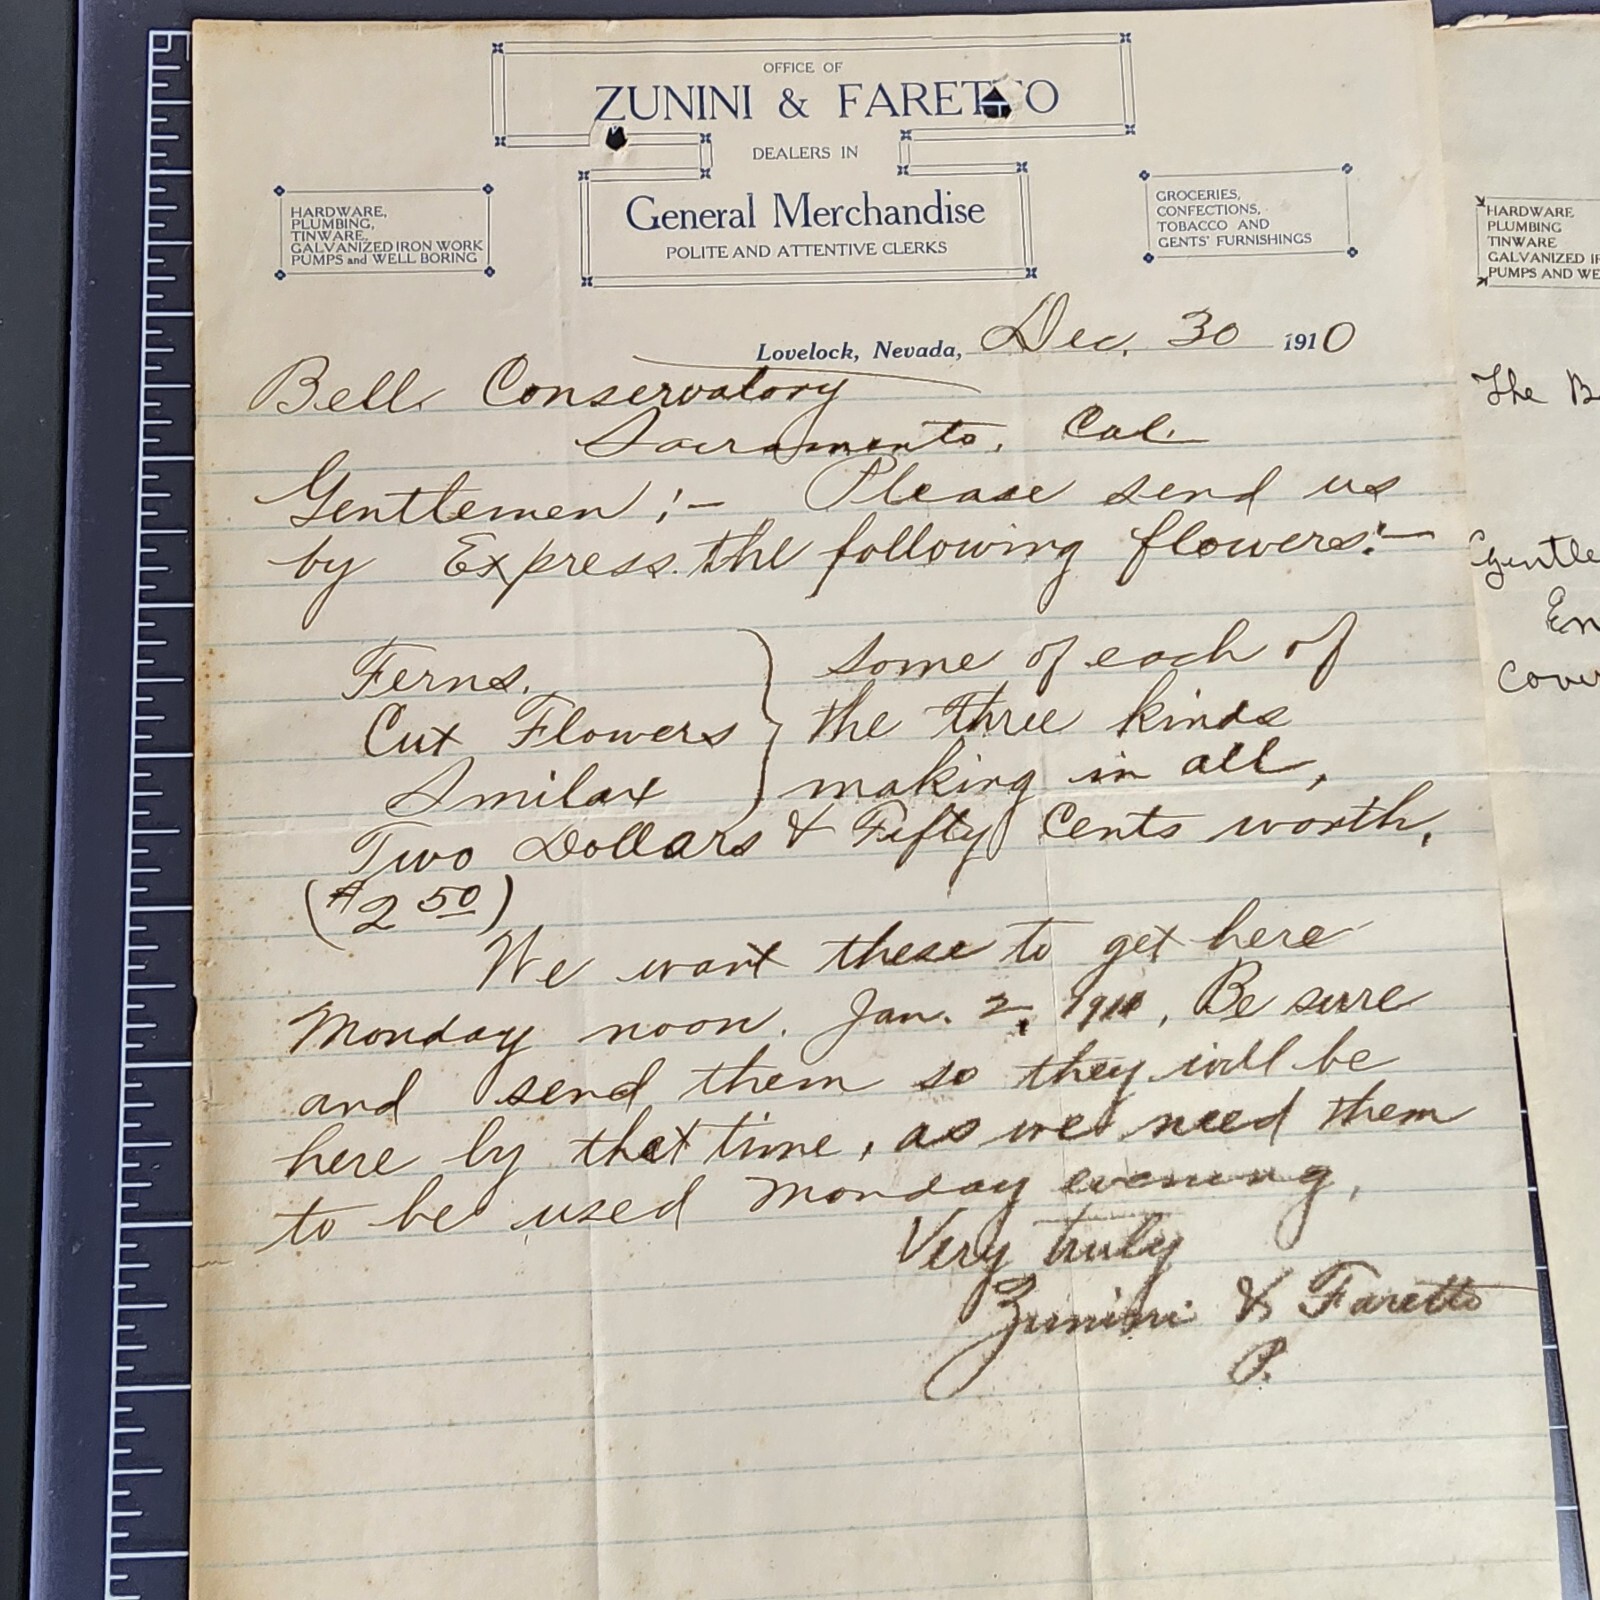 OFFICE OF
ZUNINI & FARETTO
DEALERS IN
General Merchandise
POLITE AND ATTENTIVE CLERKS
HARDWARE,
PLUMBING,
TINWARE,
GALVANIZED IRON WORK
PUMPS and WELL BORING
GROCERIES,
CONFECTIONS,
TOBACCO AND
GENTS' FURNISHINGS
Lovelock, Nevada, Dec. 30 1910
Bell Conservatory
Sacramento, Cal.
Gentlemen :- Please send us
by Express the following flowers:-
Ferns. } some of each of
Cut Flowers } the three kinds
Smilax } making in all,
Two Dollars & Fifty Cents worth.
($2 50)
We want these to get here
Monday noon. Jan. 2, 1911, Be sure
and send them so they will be
here by that time, as we need them
to be used Monday evening.
Very truly
Zunini & Faretto
P.
HARDWARE
PLUMBING
TINWARE
GALVANIZED IR
PUMPS AND WE
The B
Gentle
En
Cover